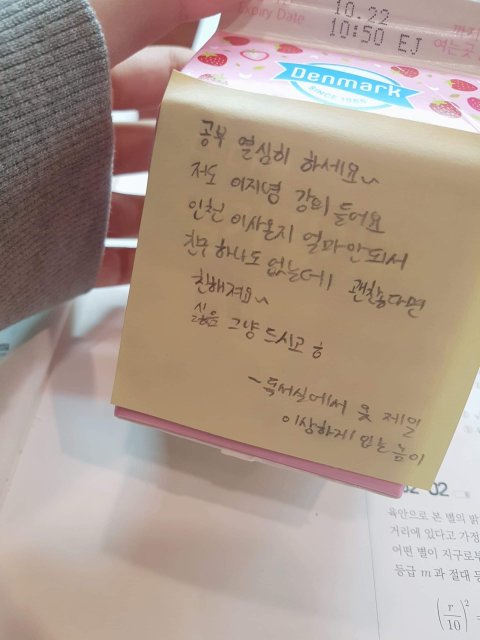 Expiry Date
10.22
10:50 EJ
여는곳
Denmark
SINCE 1985
공부 열심히 하세요~
저도 이지영 강의 들어요
인천 이사온지 얼마안되서
친구 하나도 없는데 괜찮다면
친해져요~
싫음 그냥 드시고 ㅎ
- 독서실에서 옷 제일
이상하게 입는 놈이
02-02
육안으로 본 별의 밝
거리에 있다고 가정
어떤 별이 지구로부
등급 m과 절대 등
(r/10)² =